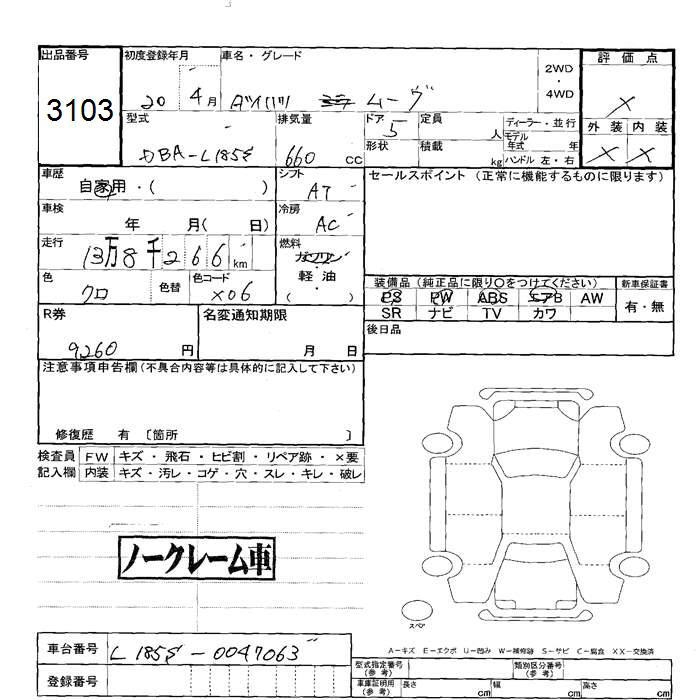 出品番号 初度登録年月 車名・グレード 2WD・4WD 評価点
3103 20 4月 ダイハツ ムーヴ X
型式 排気量 ドア 定員 ディーラー・並行 外装 内装
DBA-L185S 660 cc 5 人 モデル年式 年 X X
形状 積載 kg ハンドル 左・右
車歴 シフト セールスポイント (正常に機能するものに限ります)
自家用・( ) AT
車検 冷房
年 月( 日) AC
走行 燃料
13万8千266km ガソリン
軽・油
( )
色 色替 色コード 装備品 (純正品に限り○をつけてください) 新車保証書
クロ X06 PS PW ABS エアB AW 有・無
SR ナビ TV カワ
R券 名変通知期限 後日品
9260 円 月 日
注意事項申告欄(不具合内容等は具体的に記入して下さい)
修復歴 有 〔箇所 〕
検査員 FW キズ・飛石・ヒビ割・リペア跡・×要
記入欄 内装 キズ・汚レ・コゲ・穴・スレ・キレ・破レ
ノークレーム車
スペア
A-キズ E-エクボ U-凹み W-補修跡 S-サビ C-腐食 XX-交換済
車台番号 L185S-0047063
型式指定番号(参考) 類別区分番号(参考)
登録番号
車庫証明用(参考) 長さ cm 幅 cm 高さ cm